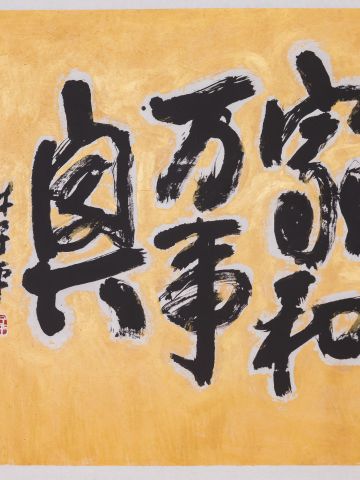 家和
万事
興